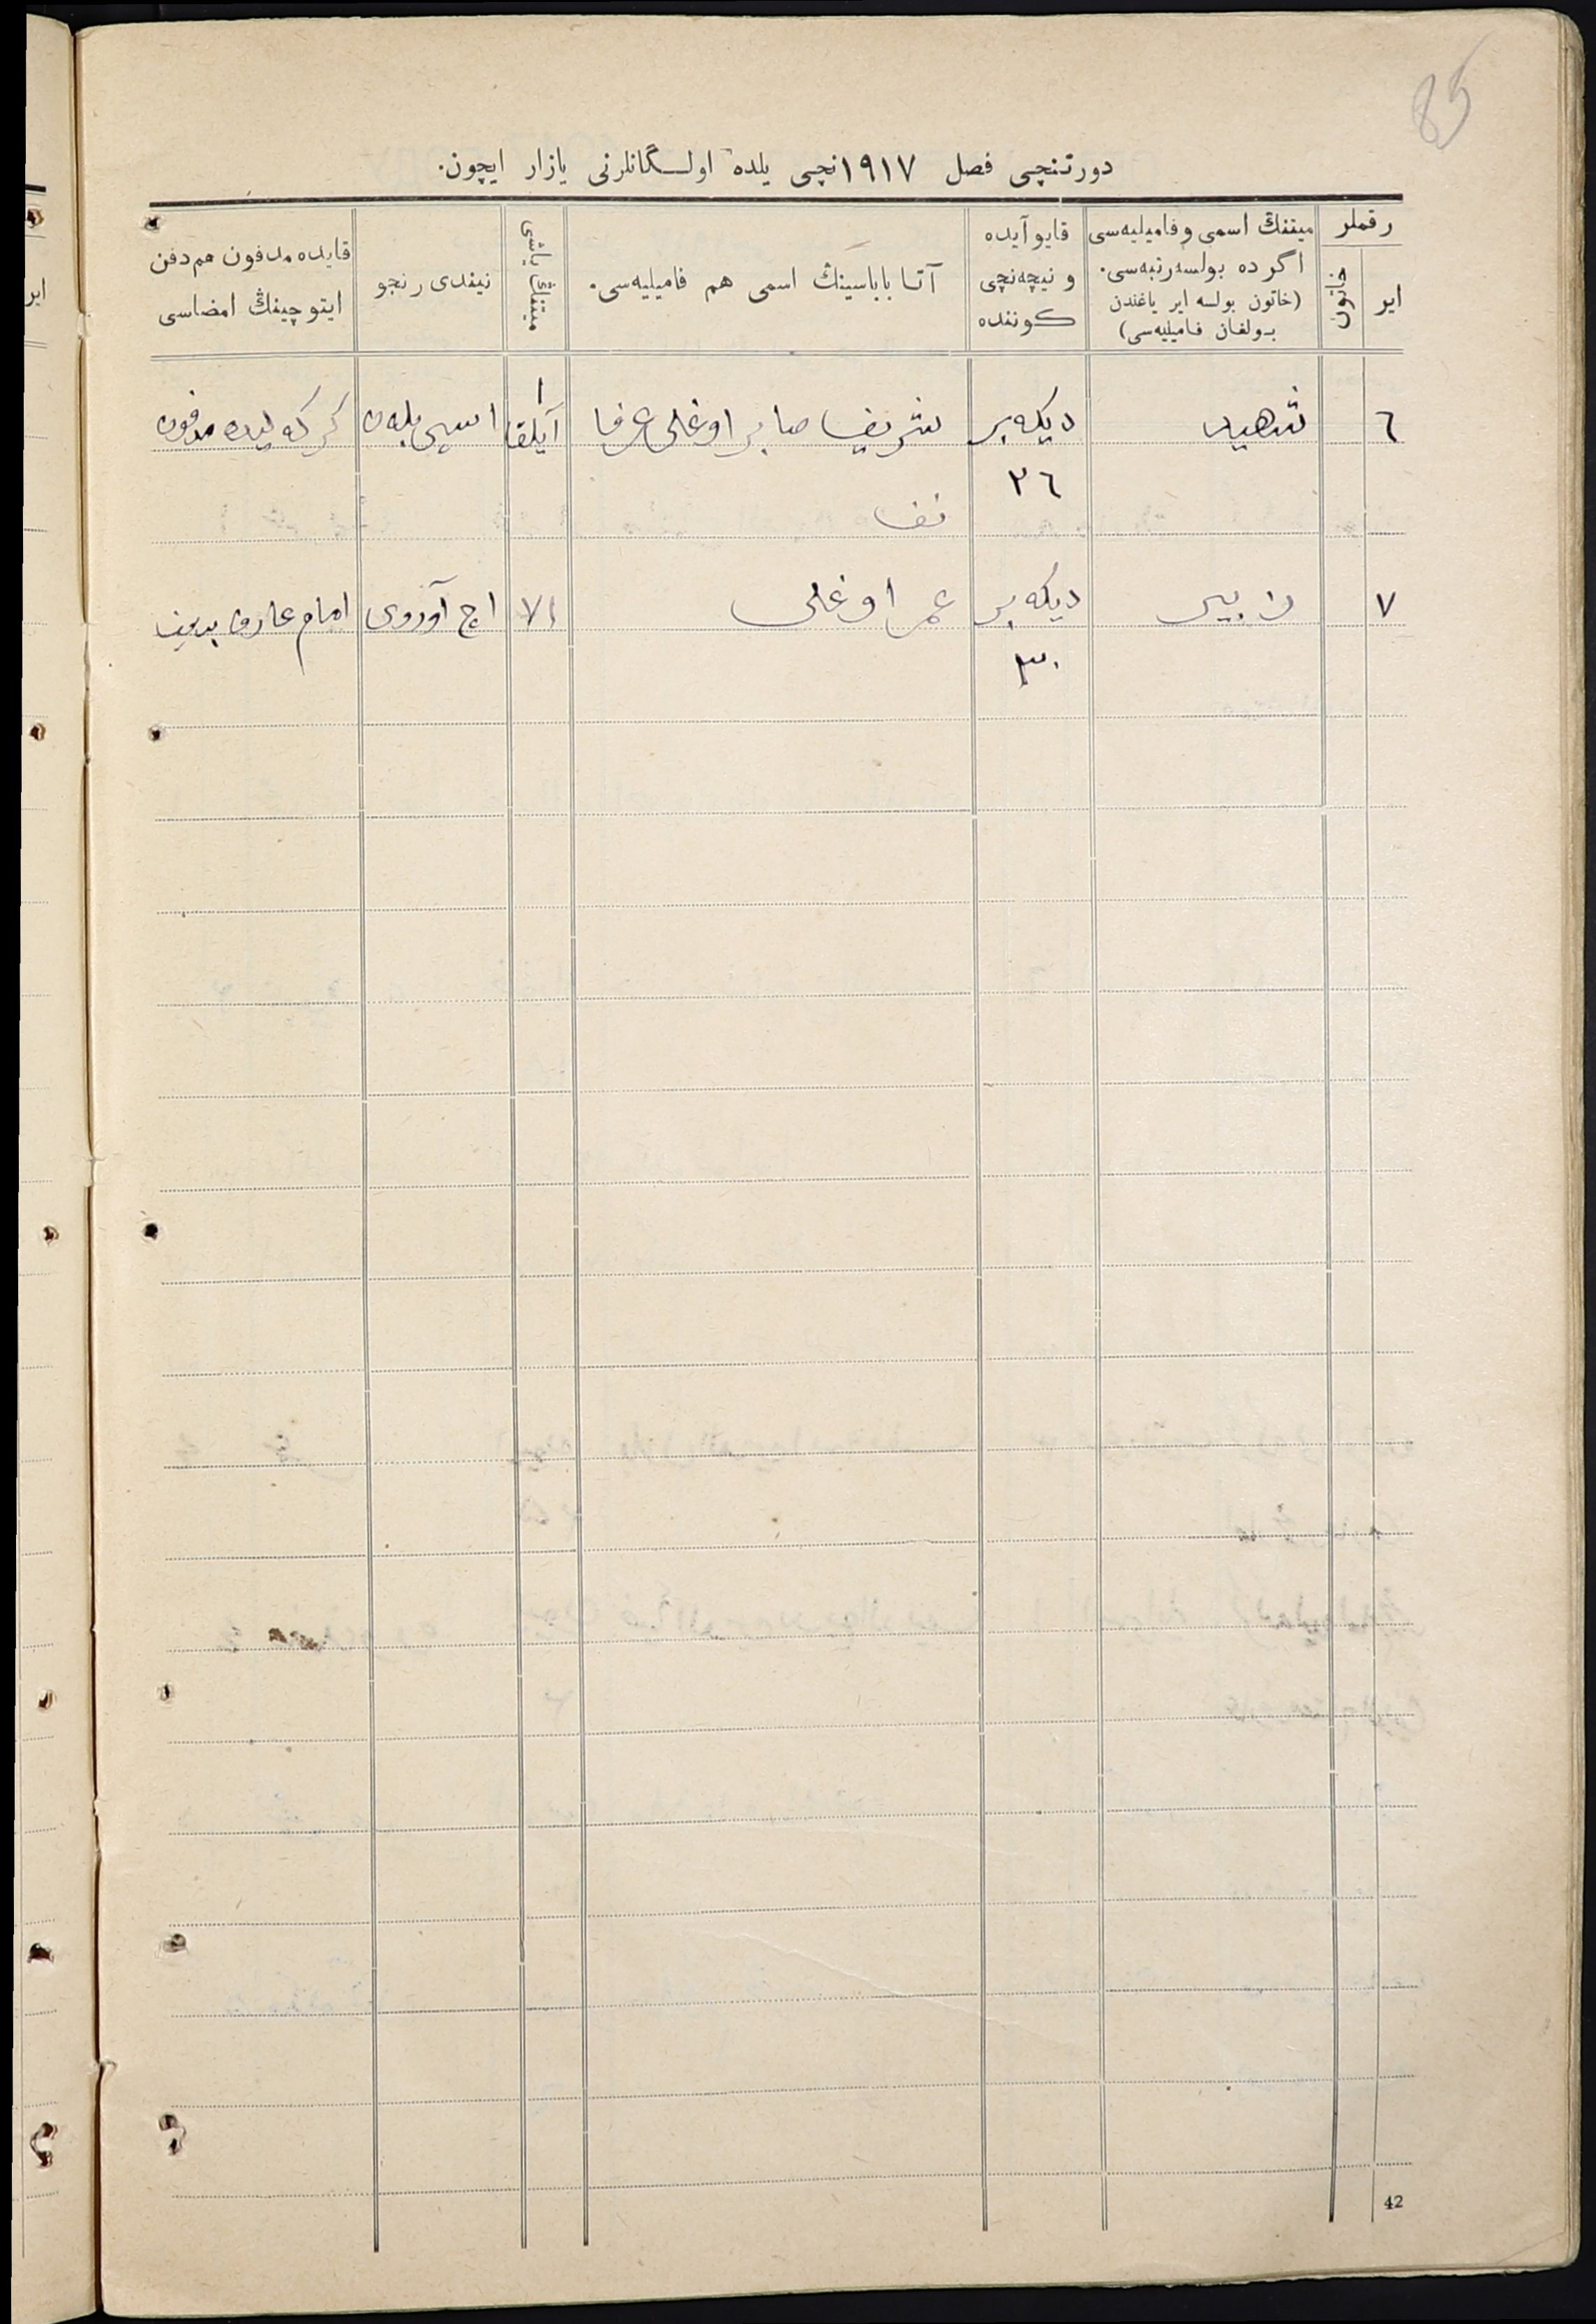 85
دورتنچی فصل ۱۹۱۷نچی یلده اولـگانلرنی یازار ایچون.
رقملر
ایر
خاتون
میتنڭ اسمی و فامیلیه‌سی
اگرده بولسه رتبه‌سی.
(خاتون بولسه ایر یاغندن
بولغان فامیلیه‌سی)
قایو آیده
و نیچه‌نچی
کوننده
آتا باباسینڭ اسمی هم فامیلیه‌سی.
میتنڭ یاشی
نیندی رنجو
قایده مدفون هم دفن
ایتوچینڭ امضاسی
٦ شهید دیکه‌بر شریف صابر اوغلی عرفا ۱ آیلق اسسی بله‌ن مدفون
٢٦
نف
٧ دیکه‌بر عمر اوغلی ٧١ اچ آوروی امام عارف
٣٠
42